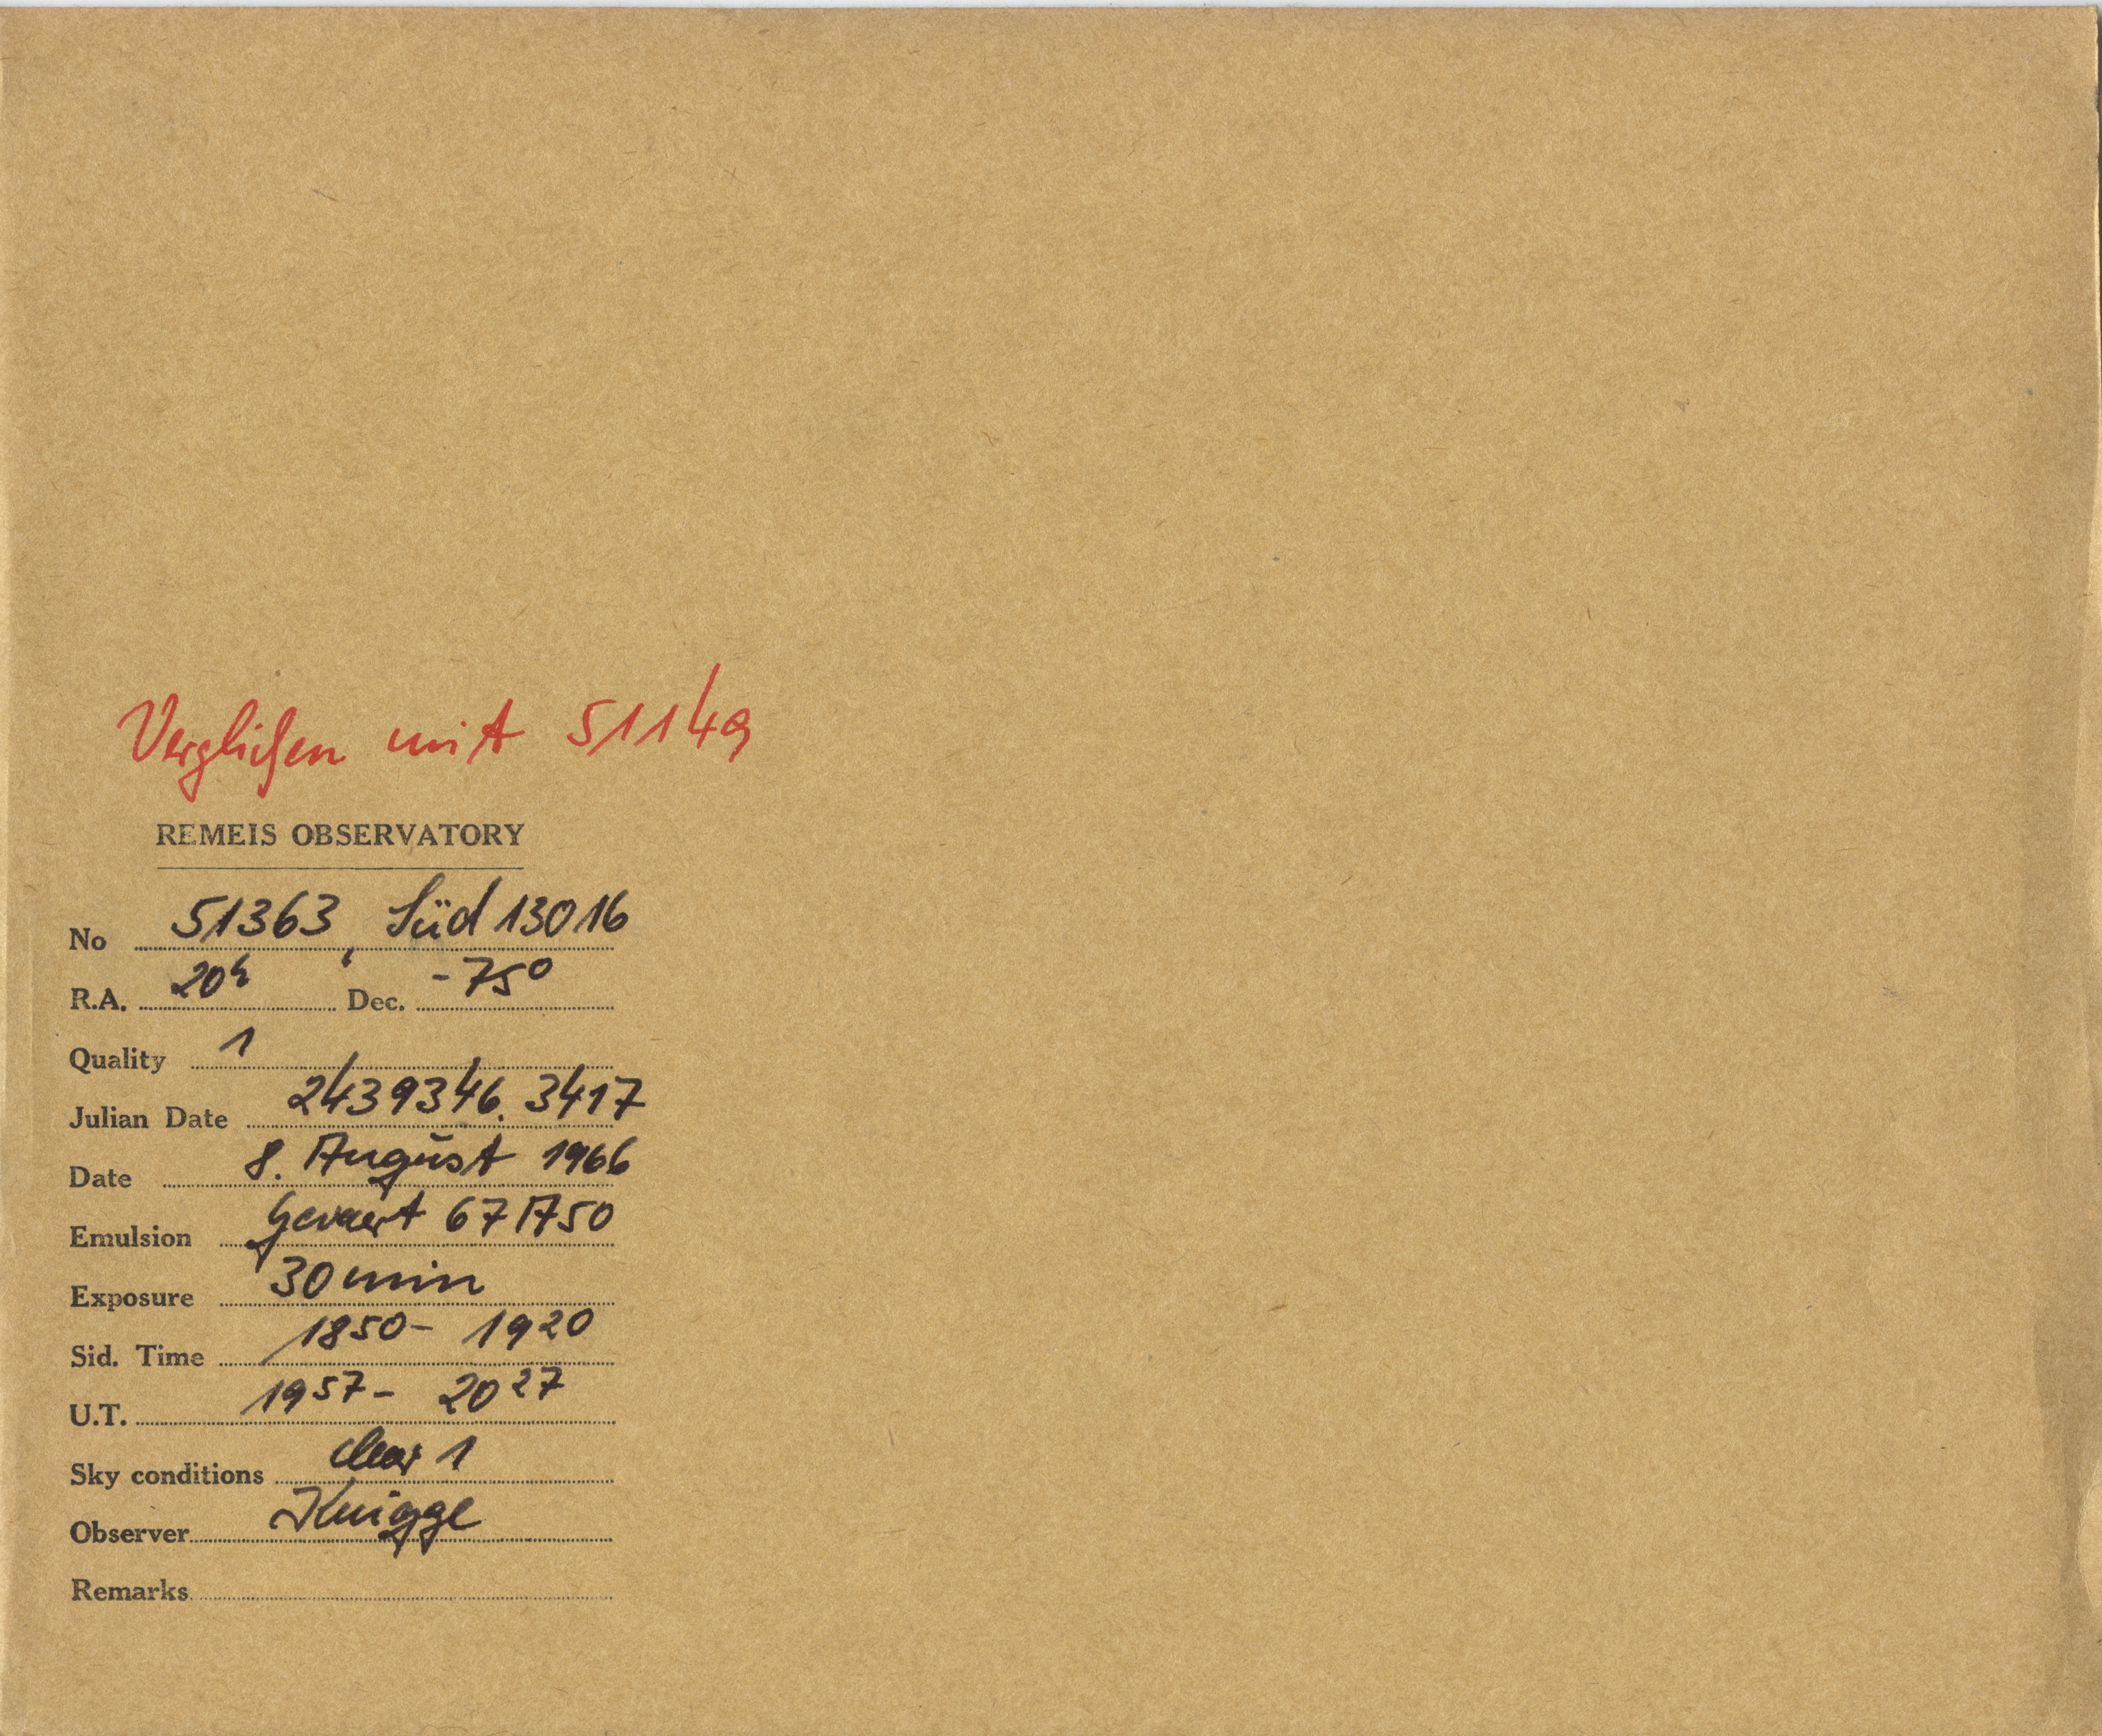 Verglichen mit 51149
REMEIS OBSERVATORY
No 51363, Süd 13016
R.A. 20h Dec. -75°
Quality 1
Julian Date 2439346.3417
Date 8. August 1966
Emulsion Gevaert 67A50
Exposure 30min
Sid. Time 1850- 1920
U.T. 1957- 2027
Sky conditions clear 1
Observer Knigge
Remarks